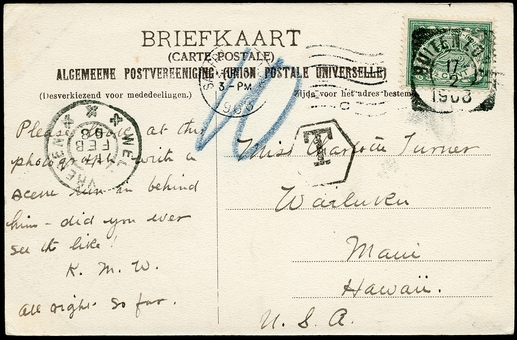 BRIEFKAART
(CARTE POSTALE)
ALGEMEENE POSTVEREENIGING (UNION POSTALE UNIVERSELLE)
(Desverkiezend voor mededeelingen.)
Zijde voor het adres bestem
3-PM
17
2
1903
WEL
FEB
T
10
Please look at this
photograph with a
scene run in behind
him - did you ever
see its like!
K. M. W.
all right so far.
Miss Charlotte Turner
Wailuku
Maui
Hawaii.
U. S. A.